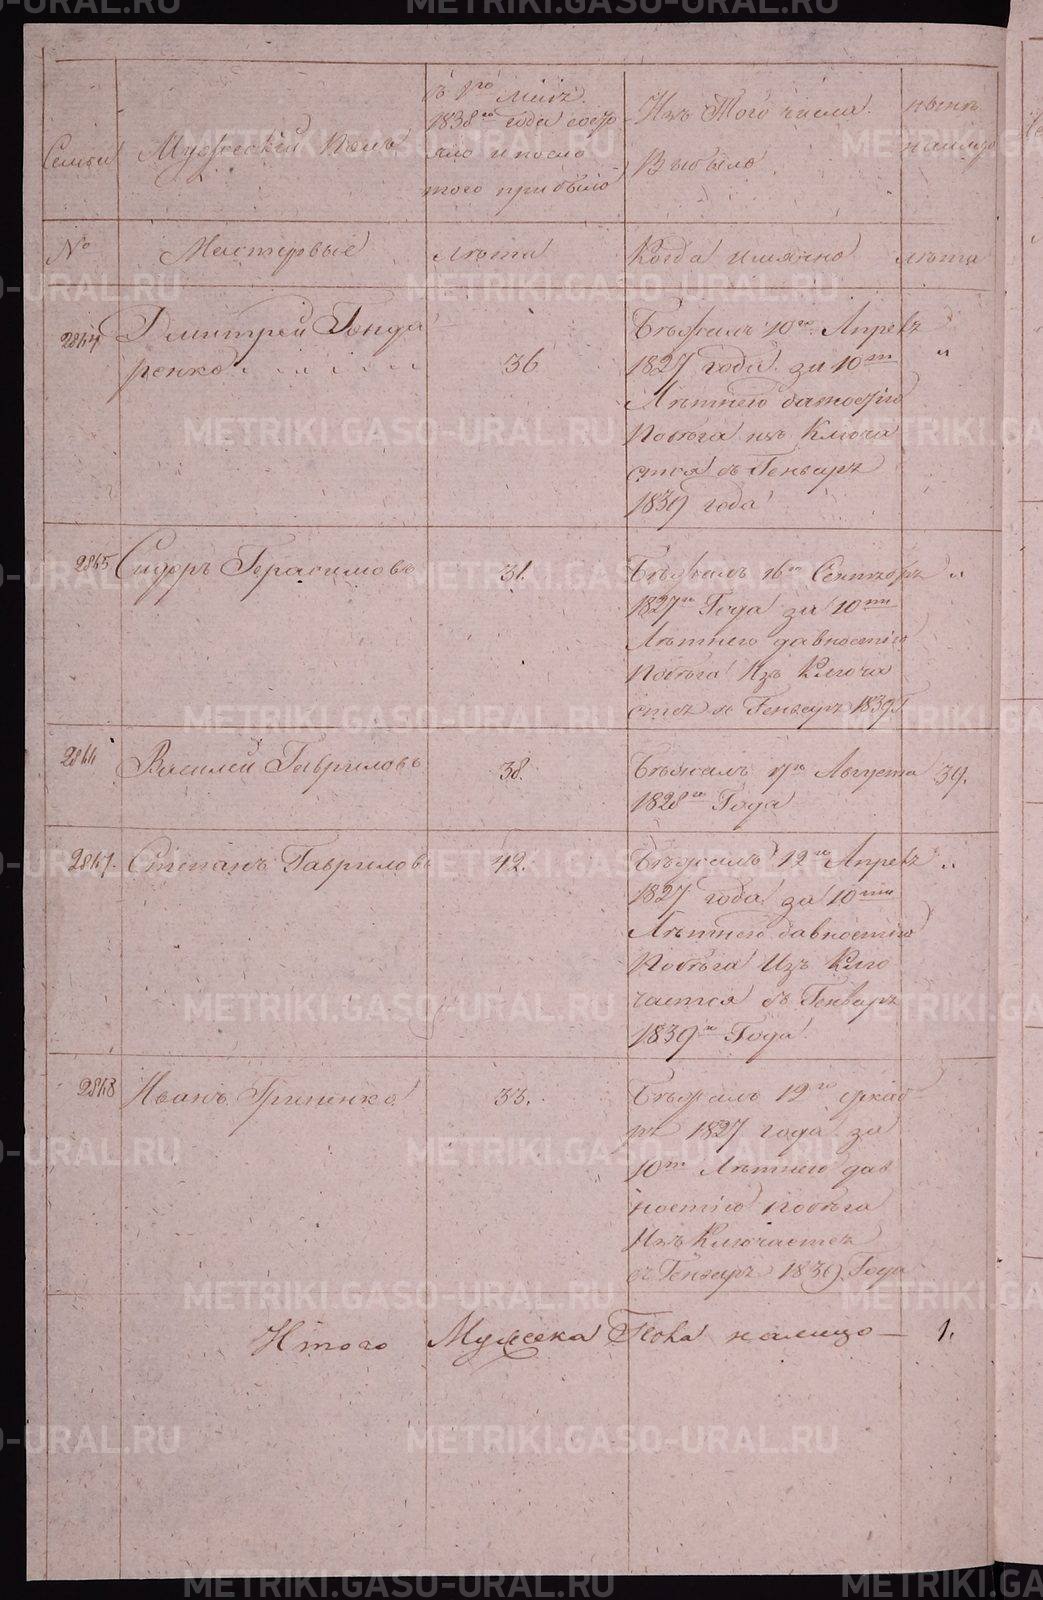 Семьи
Мужеский Полъ
съ 1го Маія
1838го года состо
яло и посло
того прибыло
Изъ Того числа
Выбыло
нынѣ
налицо
№
Мастервые
лѣта
Когда имянно
лѣта
Дмитрей Бонда
ренко
36
Бѣжалъ 10го Апреля
1827 года за 10ти
Лѣтнею давностію
Побѣга изъ Ключа
ется въ Генварѣ
1839 года
2845
Сидоръ Герасимовъ
31.
Бѣжалъ 16го Сентября
1827го Года за 10ти
Лѣтнею давностію
Побѣга Изъ Ключа
Генварѣ 1839 Г
Василей Гавриловъ
38.
Бѣжалъ 17го Августа
1828го Года
39.
2847.
Степанъ Гавриловъ
42.
Бѣжалъ 12го Апреля
1827 года за 10ти
Лѣтнею давностію
Побѣга Изъ Клю
чается въ Генварѣ
1839го Года
2848
Иванъ Гриненко
33.
Бѣжалъ 12го
1827 года за
10ти Лѣтнею дав
ностію побѣга
Изъ Ключается
въ Генварѣ 1839 Года
Итого Мужска Пола налицо — 1.
METRIKI.GASO-URAL.RU